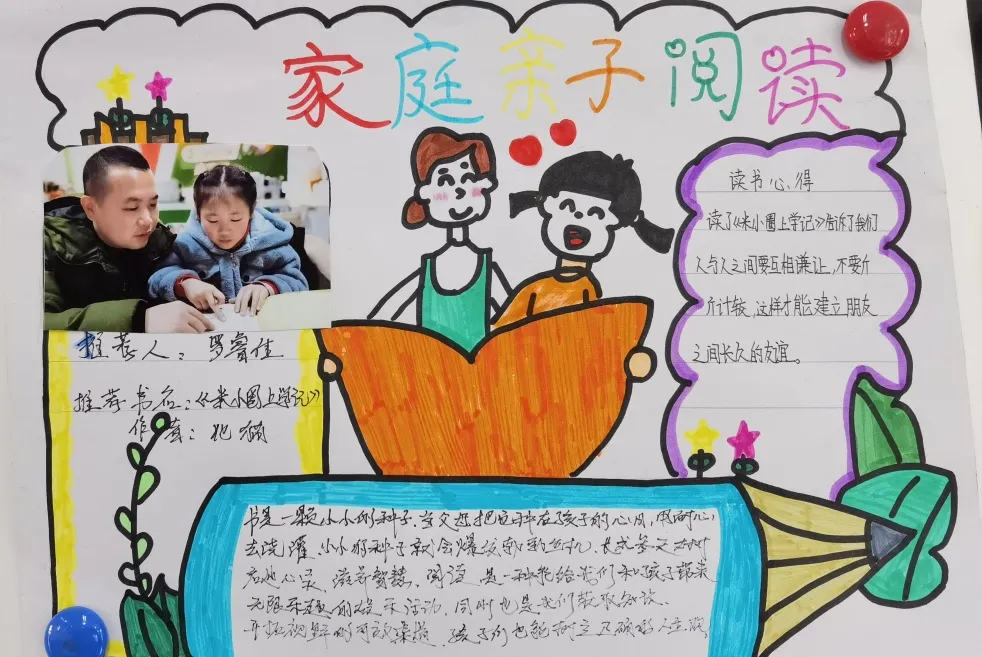 家庭亲子阅读
推荐人：罗睿佳
推荐书名：《米小圈上学记》
作者：北猫
读书心得
读了《米小圈上学记》告诉了我们
人与人之间要互相谦让，不要斤
斤计较，这样才能建立朋友
之间长久的友谊。
书是一颗小小的种子，当父母把它种在孩子的心田，用耐心
去浇灌，小小的种子就会爆发新的生机，长成参天大树
心灵，滋养智慧，阅读是一种能给我们和孩子带来
无限乐趣的娱乐活动，同时也是我们获取知识、
开拓视野的有效渠道，孩子们也能树立正确的人生观